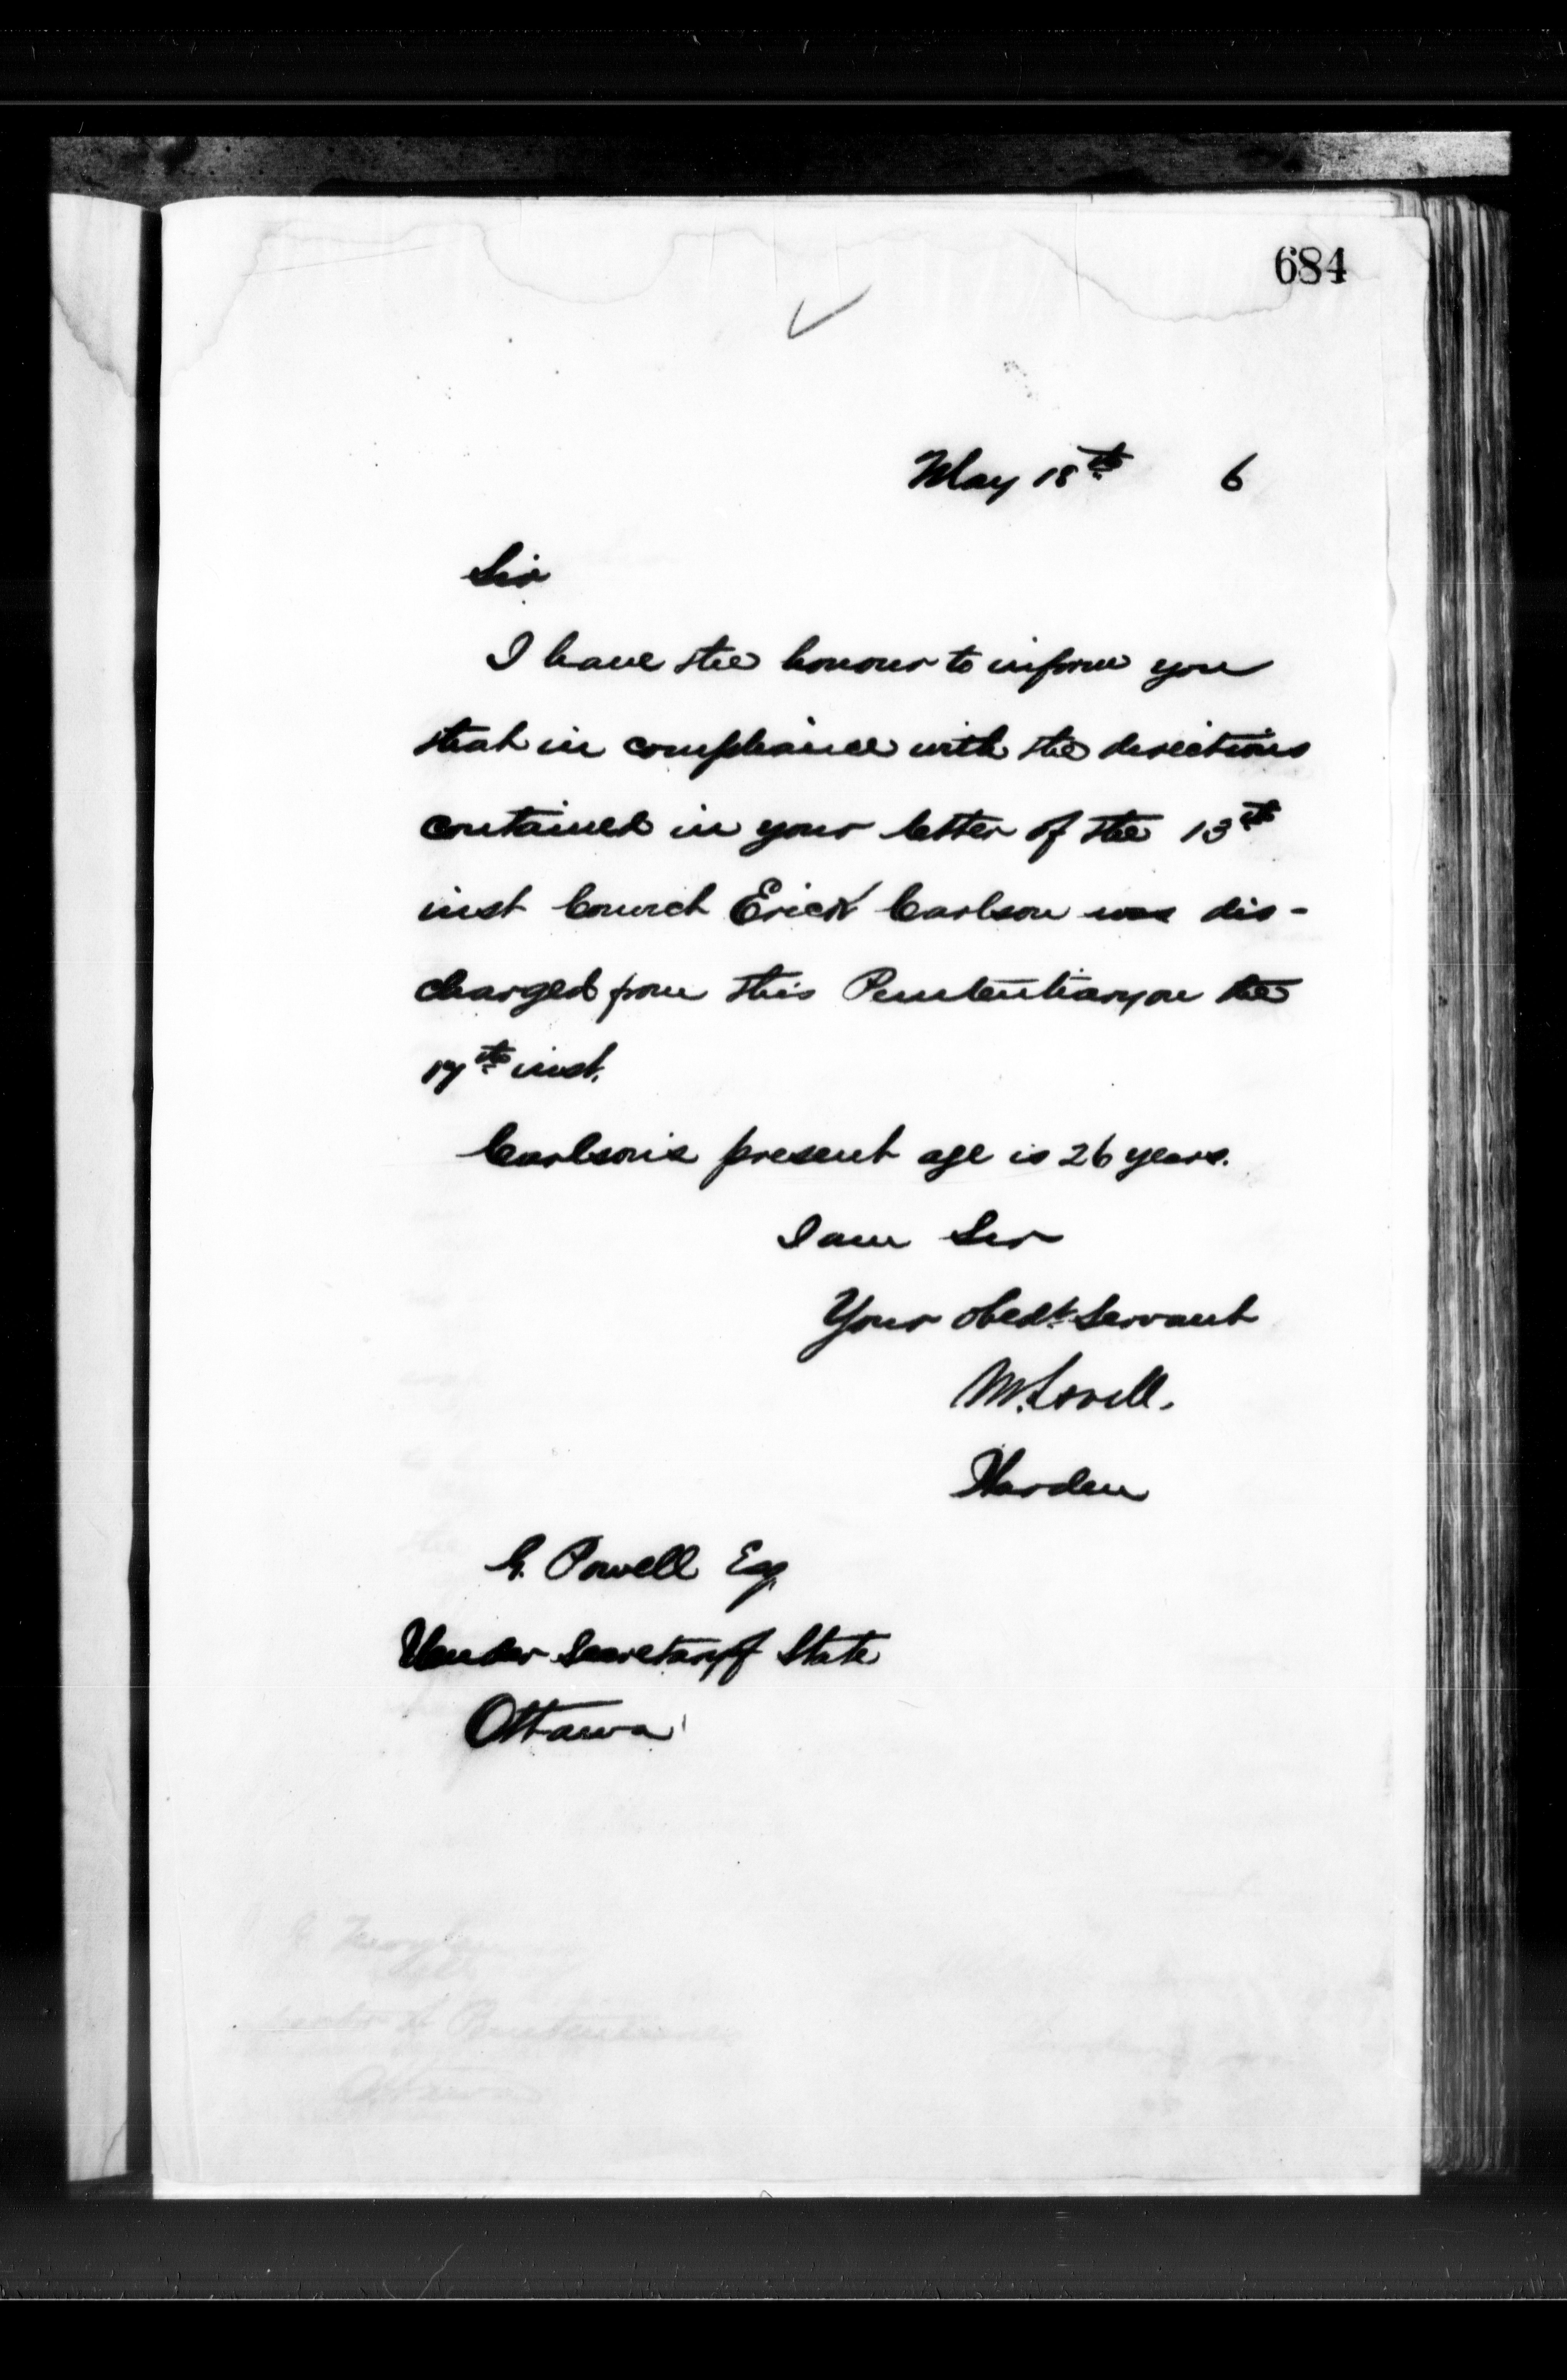 684
May 18th 6
Sir
I have the honour to inform you
that in compliance with the directions
contained in your letter of the 13th
inst Convict Erick Carlson was dis-
charged from this Penitentiary on the
17th inst.
Carlson's present age is 26 years.
I am Sir
Your obedt. Servant
M. Lavell.
Warden
G. Powell Esq
Under Secretary of State
Ottawa